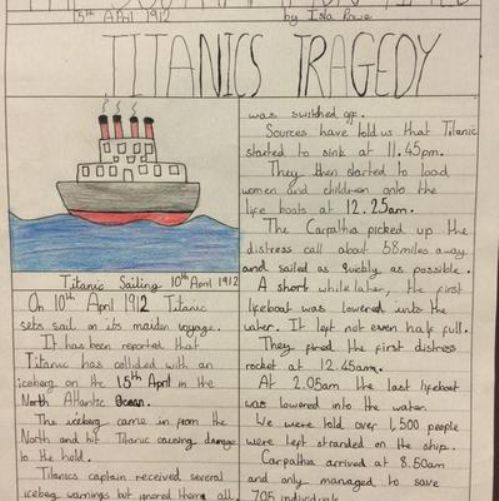 15th April 1912
by Isla Rowe
TITANICS TRAGEDY
Titanic Sailing 10th April 1912
On 10th April 1912 Titanic
sets sail on its maiden voyage.
It has been reported that
Titanic has collided with an
iceberg on the 15th April in the
North Atlantic Ocean.
The iceberg came in from the
North and hit Titanic causing damage
to the hold.
Titanics captain received several
iceberg warnings but ignored them all.
was switched off.
Sources have told us that Titanic
started to sink at 11.45pm.
They then started to load
women and children onto the
life boats at 12.25am.
The Carpathia picked up the
distress call about 58miles away
and sailed as quickly as possible.
A short while later, the first
lifeboat was lowered into the
water. It left not even half full.
They fired the first distress
rocket at 12.45am.
At 2.05am the last lifeboat
was lowered into the water.
We were told over 1,500 people
were left stranded on the ship.
Carpathia arrived at 8.50am
and only managed to save
705 individuals